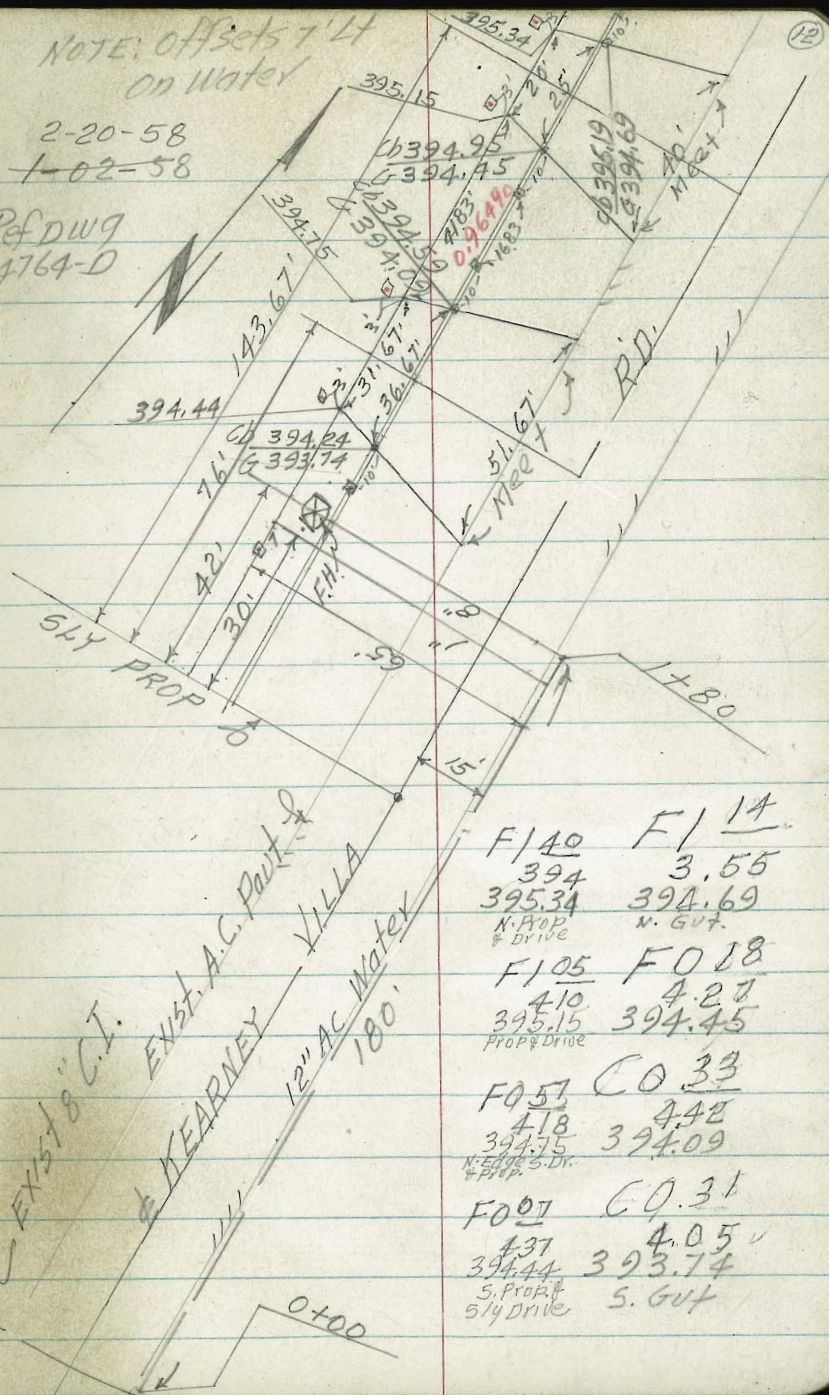 12
NOTE: Offsets 7' Lt
On Water
2-20-58
1-02-58
Ref DWg
4764-D
395.34
3'
10'
20'
25'
395.15
3'
Cb 394.95
G 394.45
10'
Cb 395.19
G 394.69
40'
Meet
394.75
Cb 394.59
G 394.09
4183'
0.9649%
1683
10
3'
143.67'
R'D.
31.67'
36.67'
394.44
3'
Cb 394.24
G 393.74
10'
51.67'
Meet
76'
42'
30'
7'
F.H.
8"
1"
65'
SLY PROP
1+80
15'
EXIST. A.C. Pavt
EXIST 8" C.I.
KEARNEY VILLA
12" AC Water
180'
0+00
F1 40
394
395.34
N. Prop
& Drive
F1 14
3.55
394.69
N. Gut.
F1 05
410
395.15
Prop & Drive
F0 18
4.27
394.45
F0 57
418
394.75
N. Edge S. Dr.
& Prop.
C0.33
442
394.09
F0 07
437
394.44
S. Prop &
S'ly Drive
C0.31
4.05
393.74
S. Gut